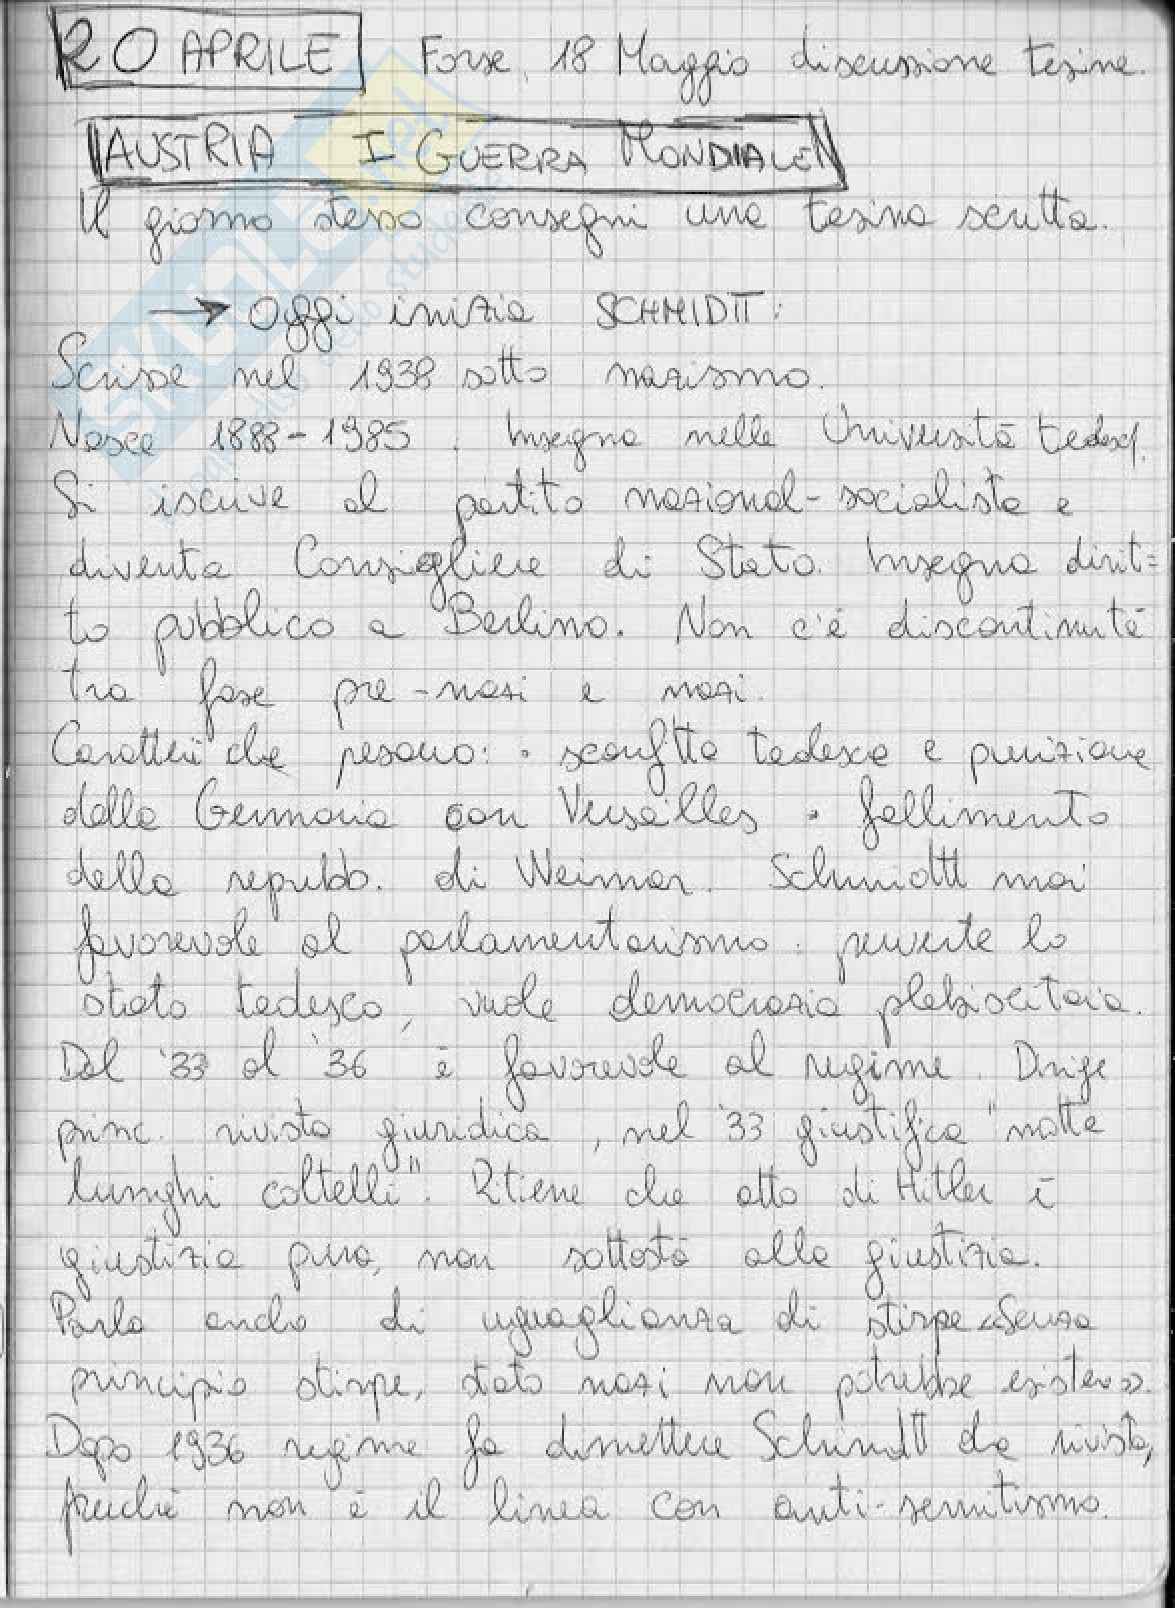 20 APRILE Forse, 18 Maggio discussione tesine.
AUSTRIA I GUERRA MONDIALE
Il giorno stesso consegni una tesina scritta.
→ Oggi inizia SCHMIDTT:
Scrisse nel 1938 sotto nazismo.
Nasce 1888-1985. Insegna nelle Università tedesch.
Si iscrive al partito nazional-socialista e
diventa Consigliere di Stato. Insegna dirit=
to pubblico a Berlino. Non c'è discontinuità
tra fase pre-nazi e nazi.
Caratteri che pesano: • sconfitta tedesca e punizione
della Germania con Versailles • fallimento
della repubb. di Weimar. Schmidtt mai
favorevole al parlamentarismo: perverte lo
stato tedesco, vuole democrazia plebiscitaria.
Dal '33 al '36 è favorevole al regime. Dirige
princ. rivista giuridica, nel '33 giustifica "notte
lunghi coltelli". Ritiene che atto di Hitler è
giustizia pura, non sottostà alla giustizia.
Parla anche di uguaglianza di stirpe «Senza
principio stirpe, stato nazi non potrebbe esistere».
Dopo 1936 regime fa dimettere Schmidtt da rivista,
perché non è il linea con anti-semitismo.
SKUOLA.net